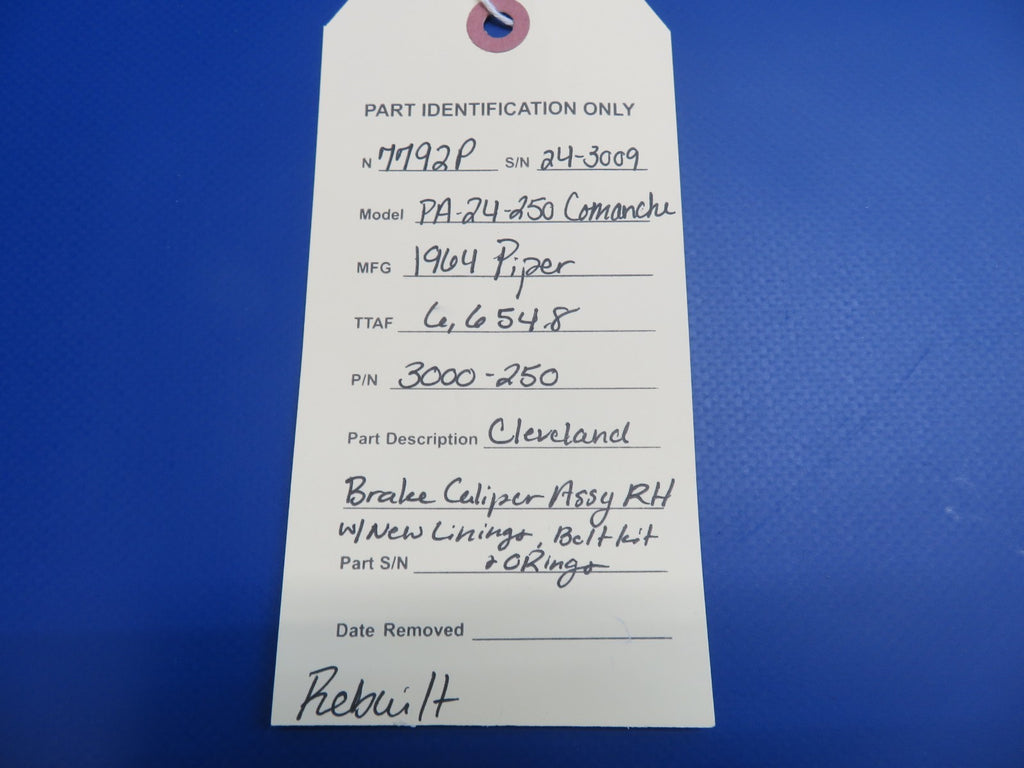 PART IDENTIFICATION ONLY
N 7792P S/N 24-3009
Model PA-24-250 Comanche
MFG 1964 Piper
TTAF 6,654.8
P/N 3000-250
Part Description Cleveland
Brake Caliper Assy RH
w/New Linings, Bolt kit
Part S/N & ORings
Date Removed
Rebuilt